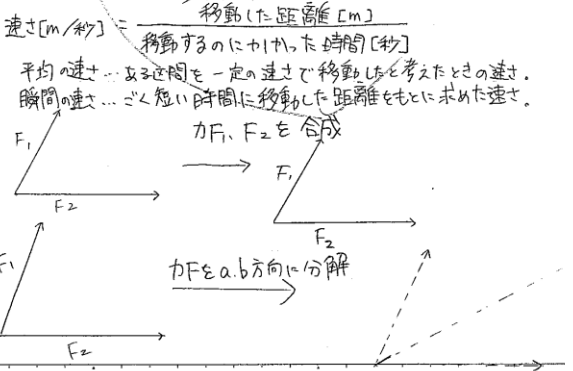 速さ[m/秒] = 移動した距離[m]
移動するのにかかった時間[秒]
平均の速さ…ある区間を一定の速さで移動したと考えたときの速さ.
瞬間の速さ…ごく短い時間に移動した距離をもとに求めた速さ.
力F₁、F₂を合成
F₁
F₂
F₁
F₂
力Fをa.b方向に分解
F₁
F₂